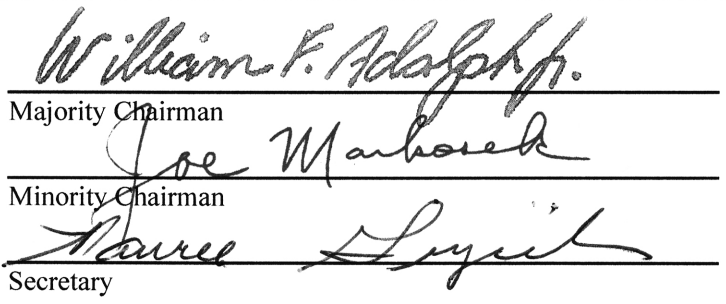 William F. Adolph Jr.
Majority Chairman
Joe Markosek
Minority Chairman
Mauree
Secretary